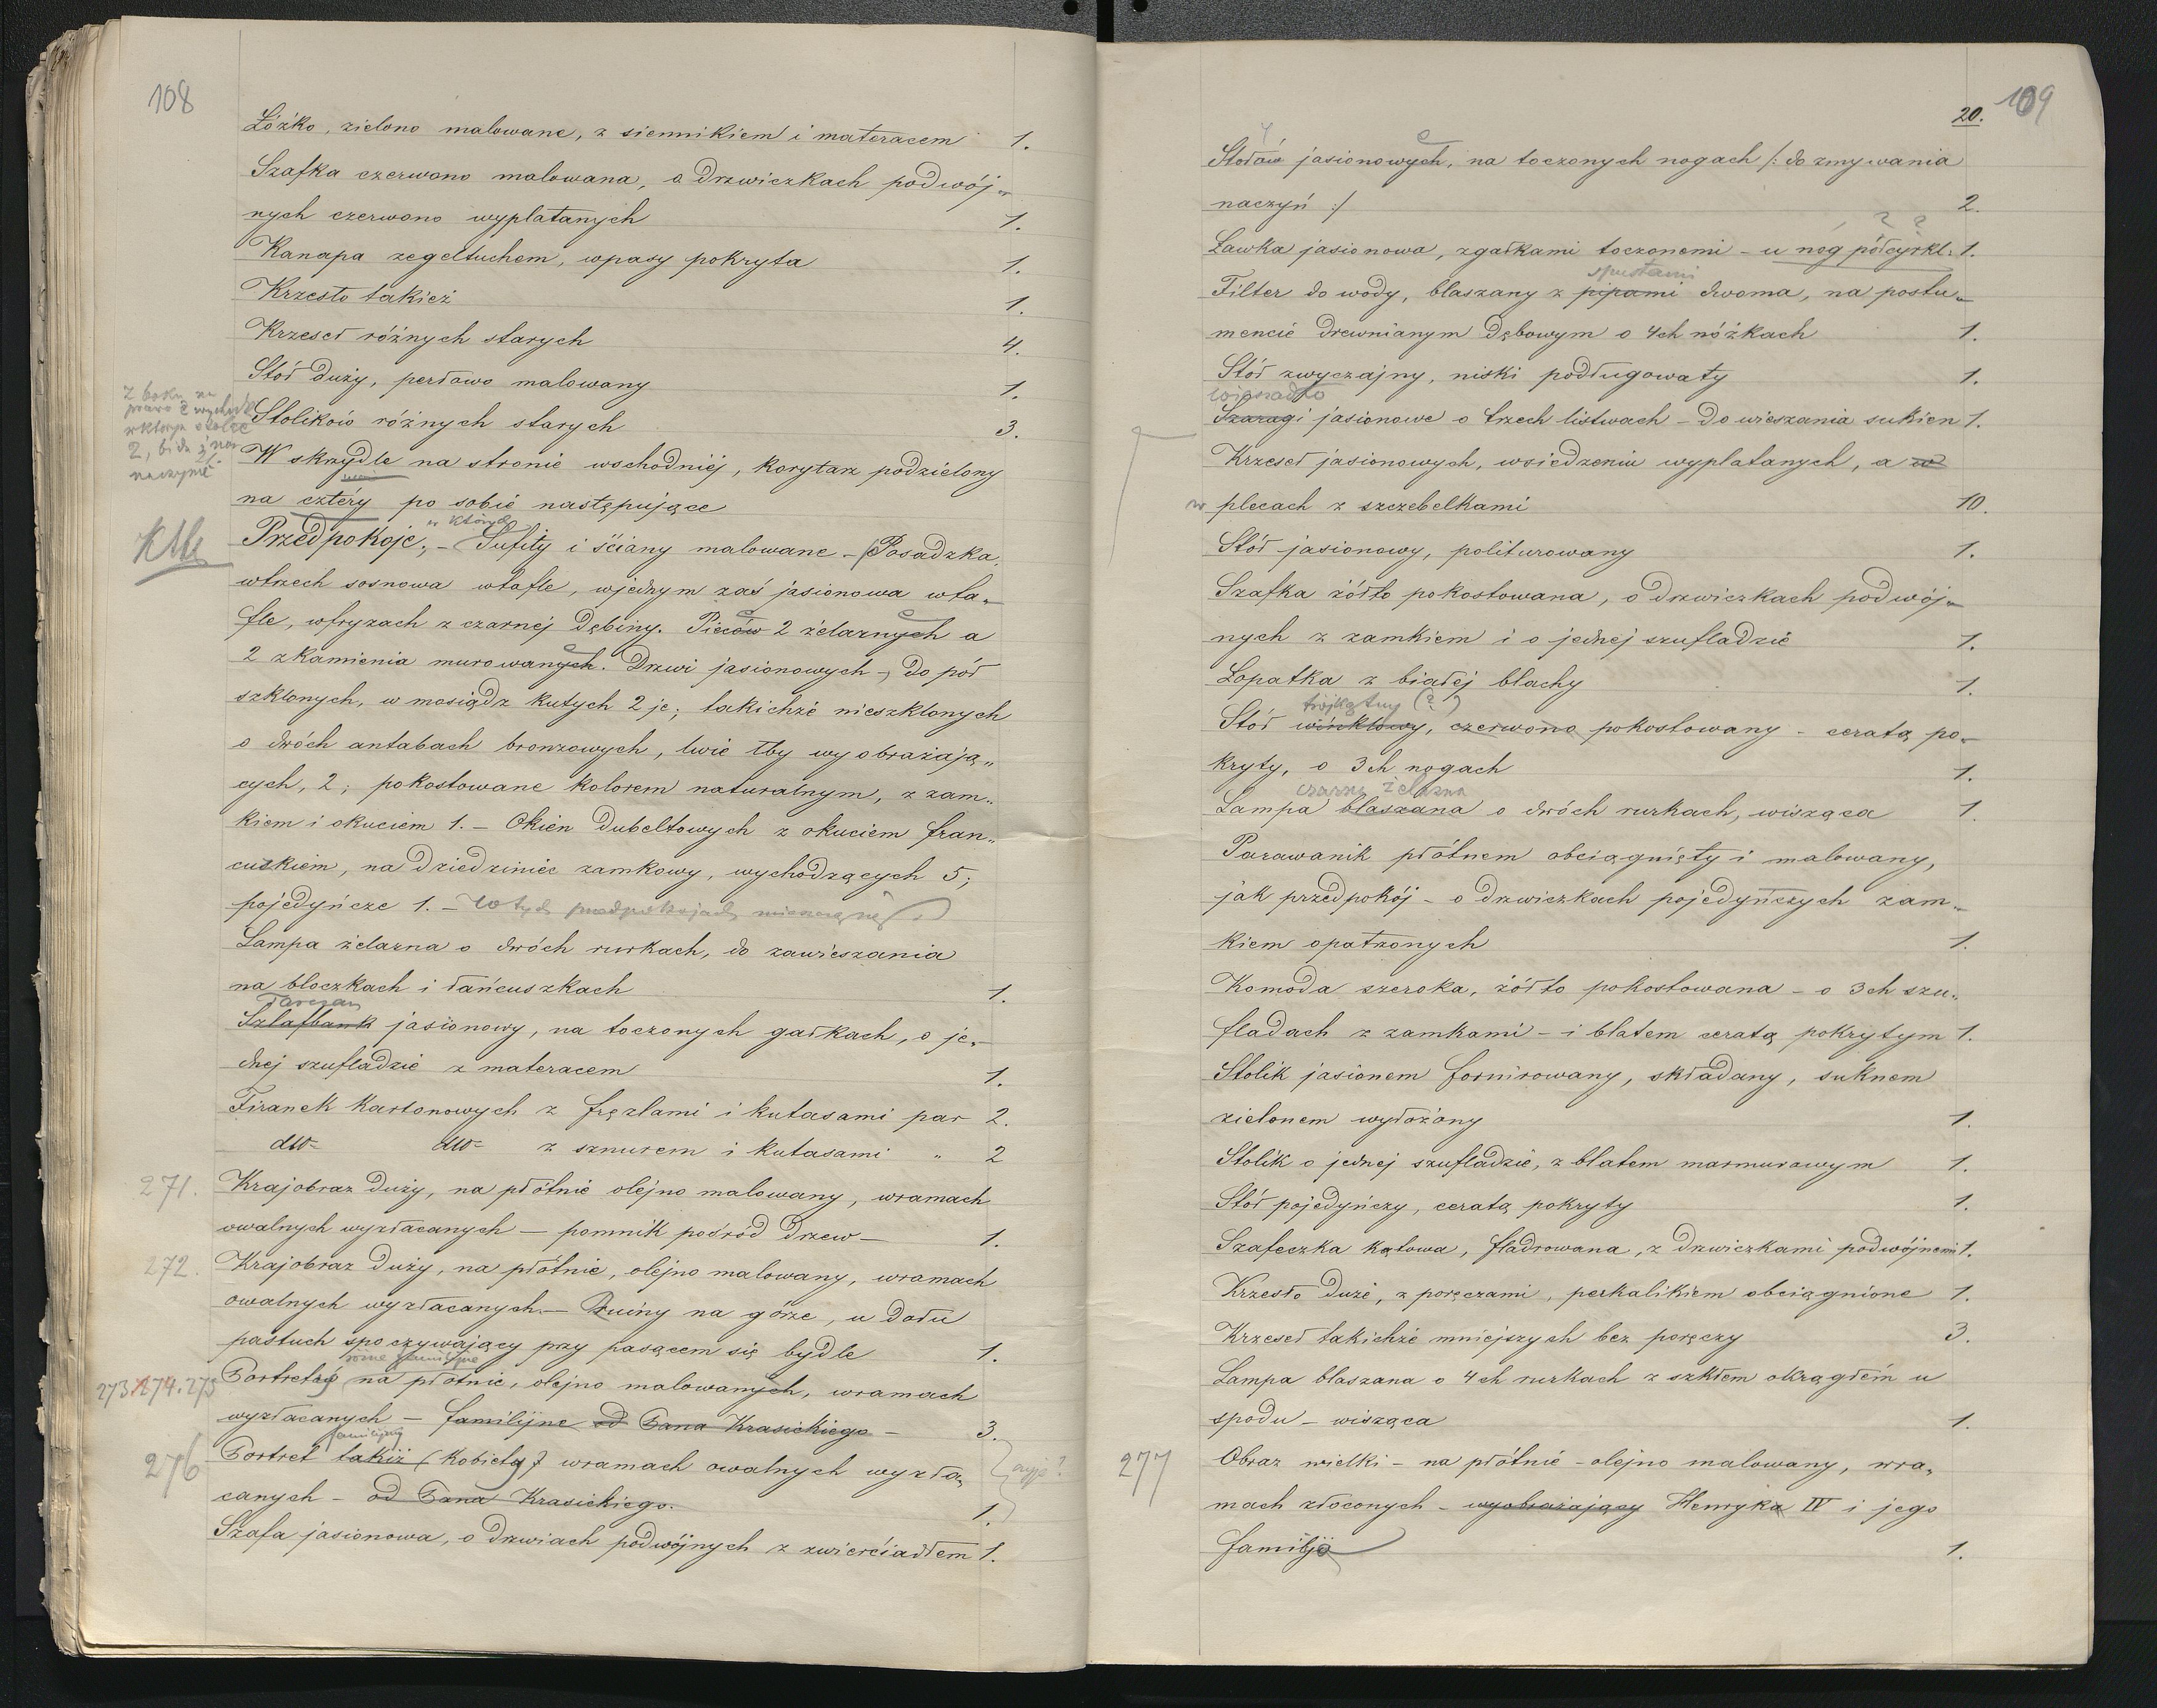 108
Łóżko, zielono malowane, z siennikiem i materacem 1.
Szafka czerwono malowana, o drzwiczkach podwój-
nych czerwono wyplatanych 1.
Kanapa zegeltuchem, wpasy pokryta 1.
Krzesło takież 1.
Krzeseł różnych starych 4.
Stół duży, perłowo malowany 1.
Z boku na
prawo
2,
naczynie
Stolików różnych starych 3.
W skrzydle na stronie wschodniéj, korytarz podzielony
na cztéry po sobie następujące
w których
Przedpokoje; – Sufity i ściany malowane – (Posadzka,
wtrzech sosnowa wtafle, wjednym zaś jasionowa wta-
fle, wfryzach z czarnéj dębiny. Pieców 2 żelaznych a
2 zkamienia murowanych. Drzwi jasionowych –, do pół
szklonych, w mosiądz kutych 2 je; takichże nieszklonych
o dwóch antabach bronzowych, lwie łby wyobrażają-
cych, 2; pokostowane kolorem naturalnym, z zam-
kiem i okuciem 1. – Okien dubeltowych z okuciem fran-
cuzkiem, na dziedziniec zamkowy, wychodzących 5;
pojedyńcze 1. – W tych przedpokojach mieszczą się
Lampa żelazna o dwóch rurkach, do zawieszania
na bloczkach i łańcuszkach 1.
Tarczan
Szlafbank jasionowy, na toczonych gałkach, o je-
dnej szufladzie z materacem 1.
Firanek kartonowych z fręzlami i kutasami par 2.
dtto dtto z sznurem i kutasami " 2
271. Krajobraz duży, na płótnie olejno malowany, wramach
owalnych wyzłacanych – pomnik pośród drzew – 1.
272. Krajobraz duży, na płótnie, olejno malowany, wramach
owalnych wyzłacanych. – Ruiny na górze, u dołu
pastuch spoczywający przy pasącem się bydle 1.
273. 274. 275 Portretów na płótnie, olejno malowanych, wramach
wyzłacanych – familijne od Pana Krasickiego – 3.
familijny
276 Portret takiż (kobiéty) wramach owalnych wyzła-
czyje?
canych – od Pana Krasickiego. 1.
Szafa jasionowa, o drzwiach podwójnych z zwierciadłem 1.
20. 109
Stołów jasionowych, na toczonych nogach /: do zmywania
naczyń :/ 2.
? ?
Ławka jasionowa, zgałkami toczonemi – u nóg półcyrkl: 1.
spustami
Filter do wody, blaszany z pipami dwoma, na postu-
mencie drewnianym dębowym o 4ch nóżkach 1.
Stół zwyczajny, niski podługowaty 1.
wieszadło
Szaragi jasionowe o trzech listwach – do wieszania sukien 1.
Krzeseł jasionowych, wsiedzeniu wyplatanych, a w
w plecach z szczebelkami 10.
Stół jasionowy, politurowany 1.
Szafka żółto pokostowana, o drzwiczkach podwój-
nych z zamkiem i o jednéj szufladzie 1.
Łopatka z białéj blachy 1.
trójkątny (?)
Stół winklowy, czerwono pokostowany – ceratą po-
kryty, o 3ch nogach 1.
czarna żelazna
Lampa blaszana o dwóch rurkach, wisząca 1.
Parawanik płótnem obciągnięty i malowany,
jak przedpokój – o drzwiczkach pojedyńczych zam-
kiem opatrzonych 1.
Komoda szeroka, żółto pokostowana – o 3ch szu-
fladach z zamkami – i blatem ceratą pokrytym 1.
Stolik jasionem fornirowany, składany, suknem
zielonem wyłożony 1.
Stolik o jednej szufladzie, z blatem marmurowym 1.
Stół pojedyńczy, ceratą pokryty 1.
Szafeczka kątowa, fladrowana, z drzwiczkami podwójnemi 1.
Krzesło duże, z poręczami, perkalikiem obciągnione 1.
Krzeseł takichże mniejszych bez poręczy 3.
Lampa blaszana o 4ch rurkach z szkłem okrągłém u
spodu – wisząca 1.
277 Obraz wielki – na płótnie – olejno malowany, wra-
mach złoconych – wyobrażający Henryka IV i jego
familją 1.